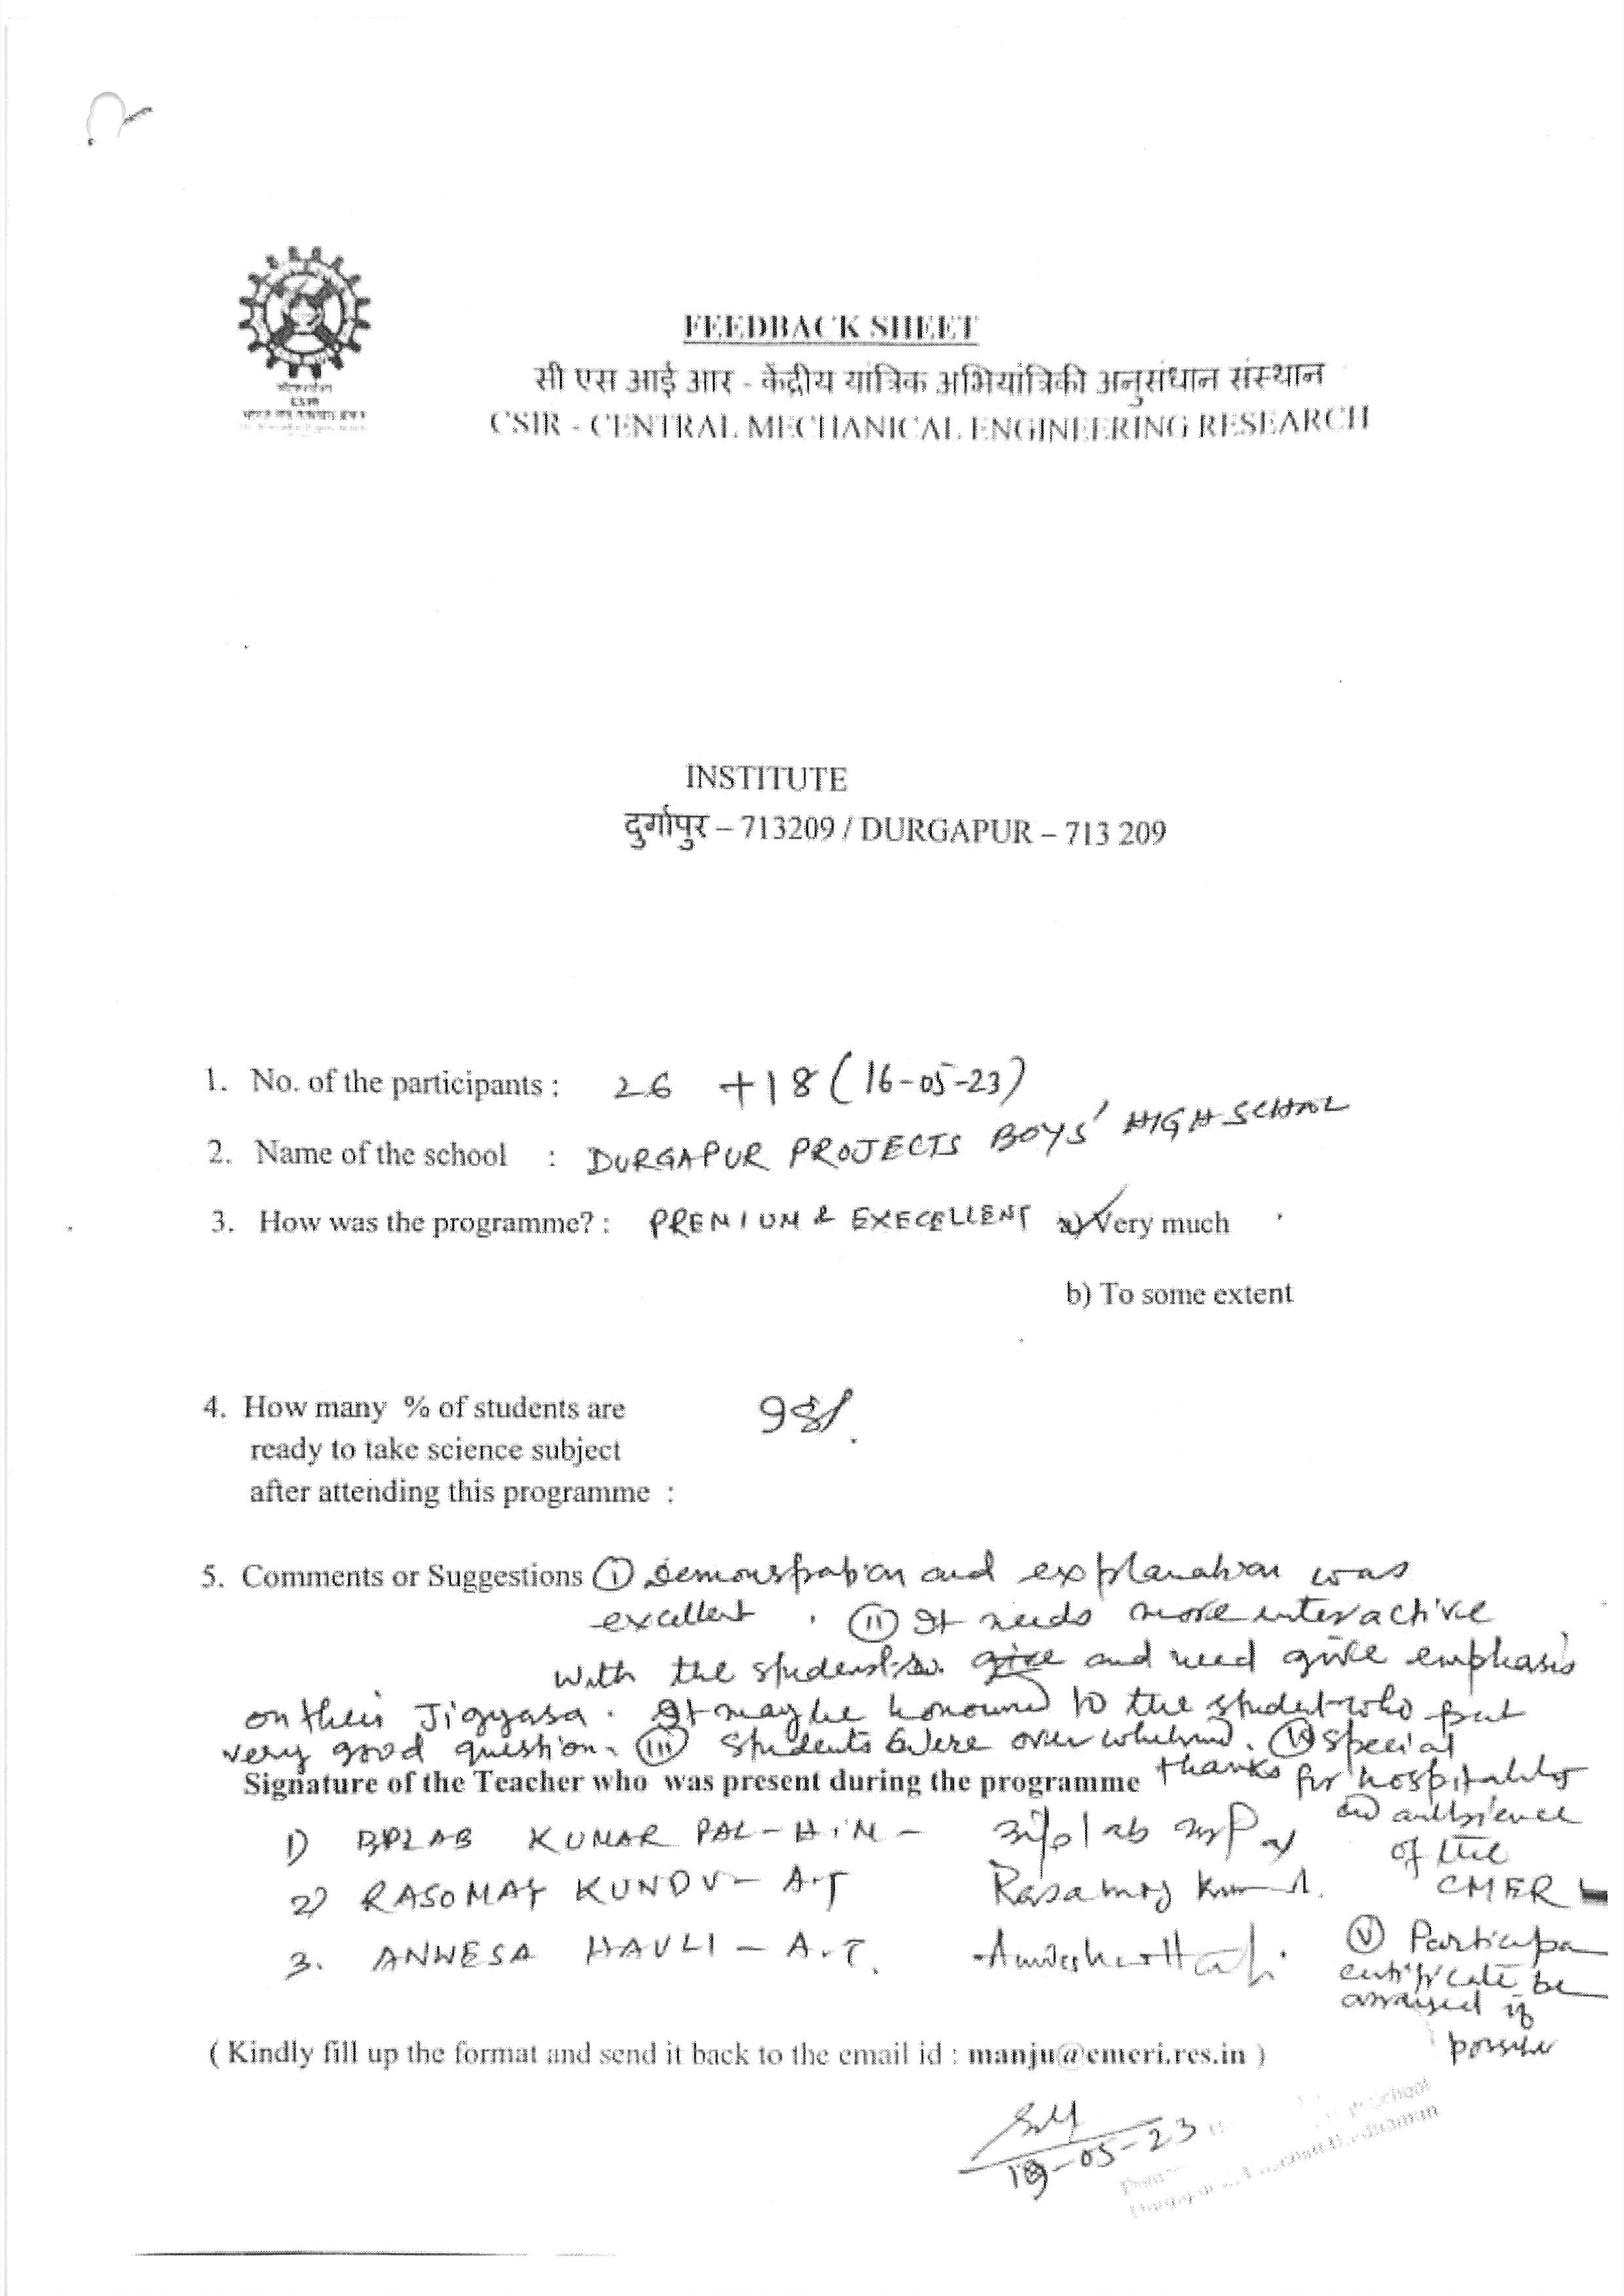 FEEDBACK SHEET
सी एस आई आर - केंद्रीय यांत्रिक अभियांत्रिकी अनुसंधान संस्थान
CSIR - CENTRAL MECHANICAL ENGINEERING RESEARCH
CSIR
INSTITUTE
दुर्गापुर – 713209 / DURGAPUR – 713 209
1. No. of the participants : 26 +18 (16-05-23)
2. Name of the school : DURGAPUR PROJECTS BOYS' HIGH SCHOOL
3. How was the programme? : PREMIUM & EXECELLENT a) Very much
b) To some extent
4. How many % of students are 98%.
ready to take science subject
after attending this programme :
5. Comments or Suggestions (i) Demonstration and explanation was
excellent . (ii) It needs more interactive
with the students. give and need give emphasis
on their Jigyasa. It may be honoured to the student who put
very good question. (iii) Students were overwhelmed. (iv) Special
Signature of the Teacher who was present during the programme thanks for hospitality
1) KUMAR PAL - H.M - and
of the
2) RASOMAY KUNDU - A.T CMER
3. ANWESA HAULI - A.T. (v)
certificate be
arranged if
possible
( Kindly fill up the format and send it back to the email id : manju@cmeri.res.in )
19-05-23
School